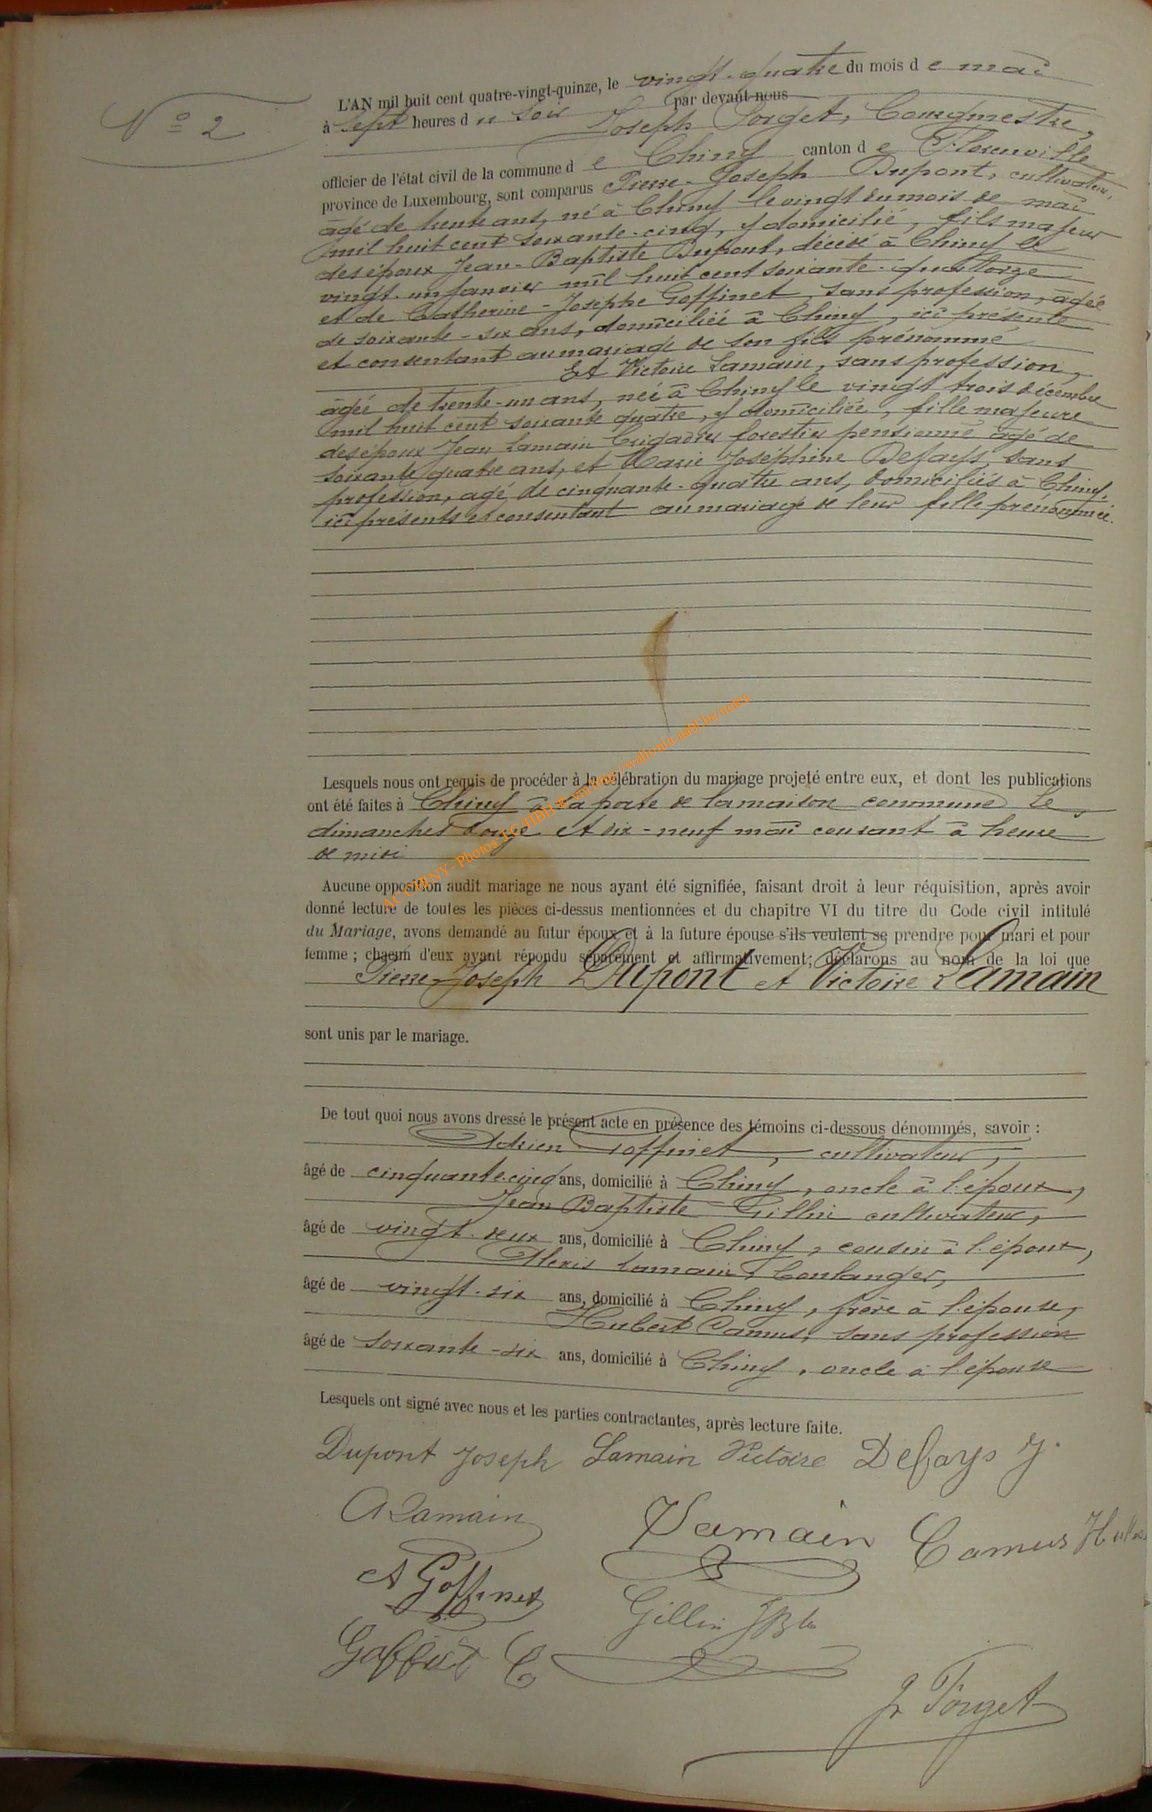 N° 2
L'AN mil huit cent quatre-vingt-quinze, le vingt-quatre du mois de mai
à sept heures du soir par devant nous
Joseph Forget, Bourgmestre,
officier de l'état civil de la commune de Chiny canton de Florenville
province de Luxembourg, sont comparus Pierre-Joseph Dupont, cultivateur,
âgé de trente ans, né à Chiny le vingt du mois de mai
mil huit cent soixante-cinq, y domicilié, fils majeur
des époux Jean-Baptiste Dupont, décédé à Chiny le
vingt-un janvier mil huit cent soixante-quatorze
et de Catherine-Josephe Goffinet, sans profession, âgée
de soixante-six ans, domiciliée à Chiny, ici présente
et consentant au mariage de son fils prénommé
Et Victoire Lamain, sans profession,
âgée de trente-un ans, née à Chiny le vingt trois décembre
mil huit cent soixante quatre, y domiciliée, fille majeure
des époux Jean Lamain Brigadier forestier pensionné âgé de
soixante quatre ans, et Marie Joséphine Defays, sans
profession, agé de cinquante-quatre ans, domiciliés à Chiny,
ici présents et consentant au mariage de leur fille prénommée.
Lesquels nous ont requis de procéder à la célébration du mariage projeté entre eux, et dont les publications
ont été faites à Chiny à la porte de la maison commune le
dimanches douze et dix-neuf mai courant à heure
de midi
Aucune opposition audit mariage ne nous ayant été signifiée, faisant droit à leur réquisition, après avoir
donné lecture de toutes les pièces ci-dessus mentionnées et du chapitre VI du titre du Code civil intitulé
du Mariage, avons demandé au futur époux et à la future épouse s'ils veulent se prendre pour mari et pour
femme ; chacun d'eux ayant répondu séparément et affirmativement; déclarons au nom de la loi que
Pierre-Joseph Dupont et Victoire Lamain
sont unis par le mariage.
De tout quoi nous avons dressé le présent acte en présence des témoins ci-dessous dénommés, savoir :
Adrien Goffinet, cultivateur,
âgé de cinquante cinq ans, domicilié à Chiny, oncle à l'époux,
Jean Baptiste Gillin cultivateur,
âgé de vingt-deux ans, domicilié à Chiny, cousin à l'époux,
Alexis Lamain, boulanger,
âgé de vingt-six ans, domicilié à Chiny, frère à l'épouse,
Hubert Camus, sans profession
âgé de soixante-six ans, domicilié à Chiny, oncle à l'épouse
Lesquels ont signé avec nous et les parties contractantes, après lecture faite.
Dupont Joseph Lamain Victoire Defays J.
A Lamain Lamain Camus
A Goffinet Gillin JBte
Goffinet C
J. Forget